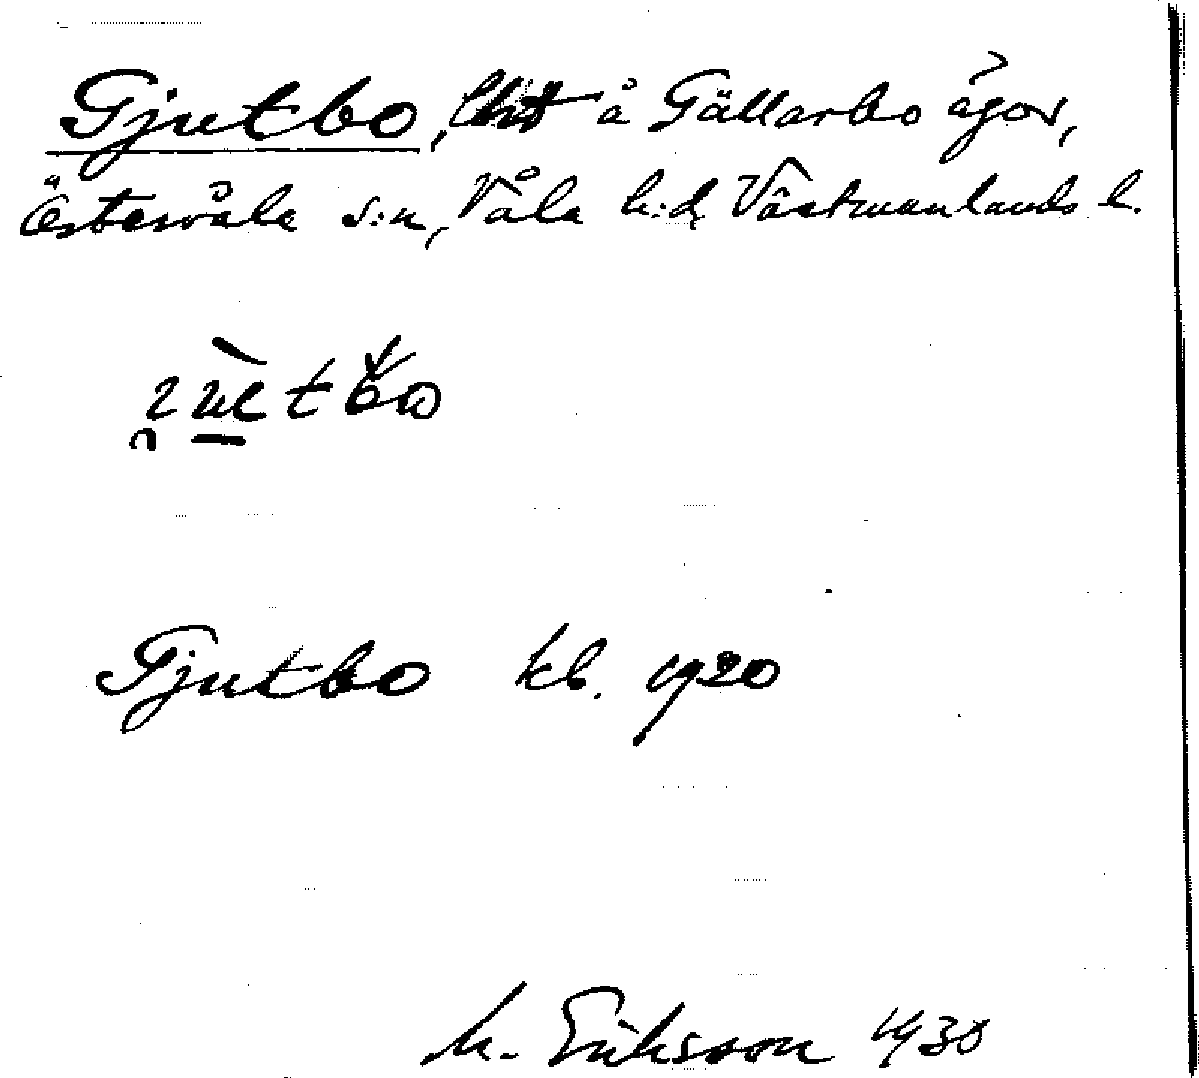 Gjutbo, å Gällarbo ägor,
Östervåla s:n, Våla h:d, Västmanlands l.
Gjutbo kb. 1920
M. Eriksson 1930